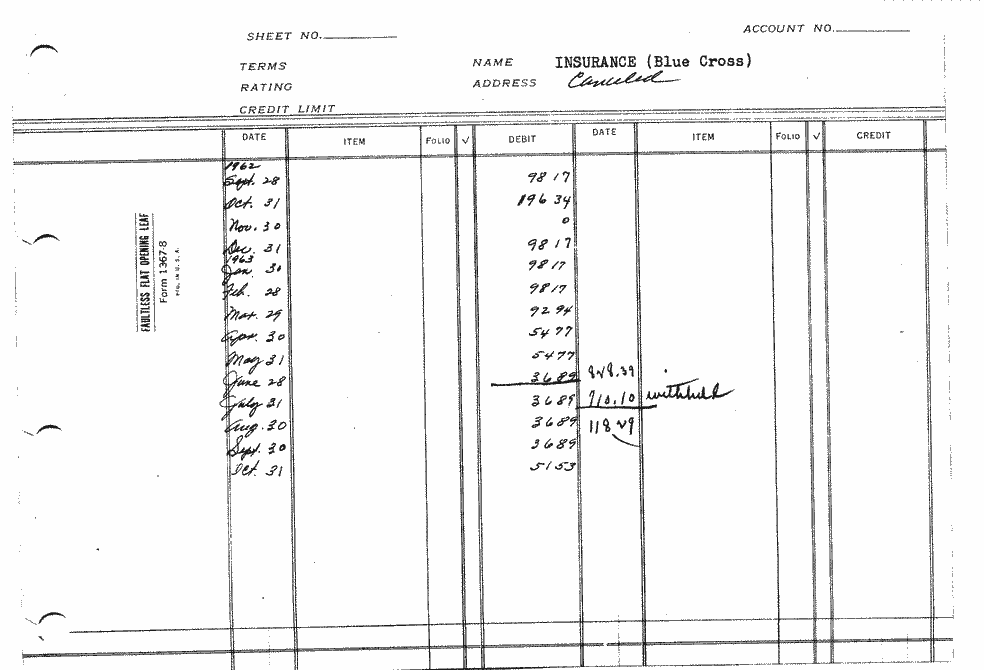 SHEET NO.
ACCOUNT NO.
TERMS
NAME INSURANCE (Blue Cross)
RATING
ADDRESS Canceled
CREDIT LIMIT
DATE ITEM FOLIO √ DEBIT DATE ITEM FOLIO √ CREDIT
1962
Sept. 28 98 17
Oct. 31 196 34
Nov. 30 0
Dec. 31 98 17
1963
Jan. 30 98 17
Feb. 28 98 17
Mar. 29 92 94
Apr. 30 54 77
May 31 54 77
June 28 36 89 828.39
July 31 36 89 710.10 withheld
Aug. 30 36 89 118 29
Sept. 30 36 89
Oct. 31 51 53
FAULTLESS FLAT OPENING LEAF
Form 1367-8
MFD. IN U. S. A.